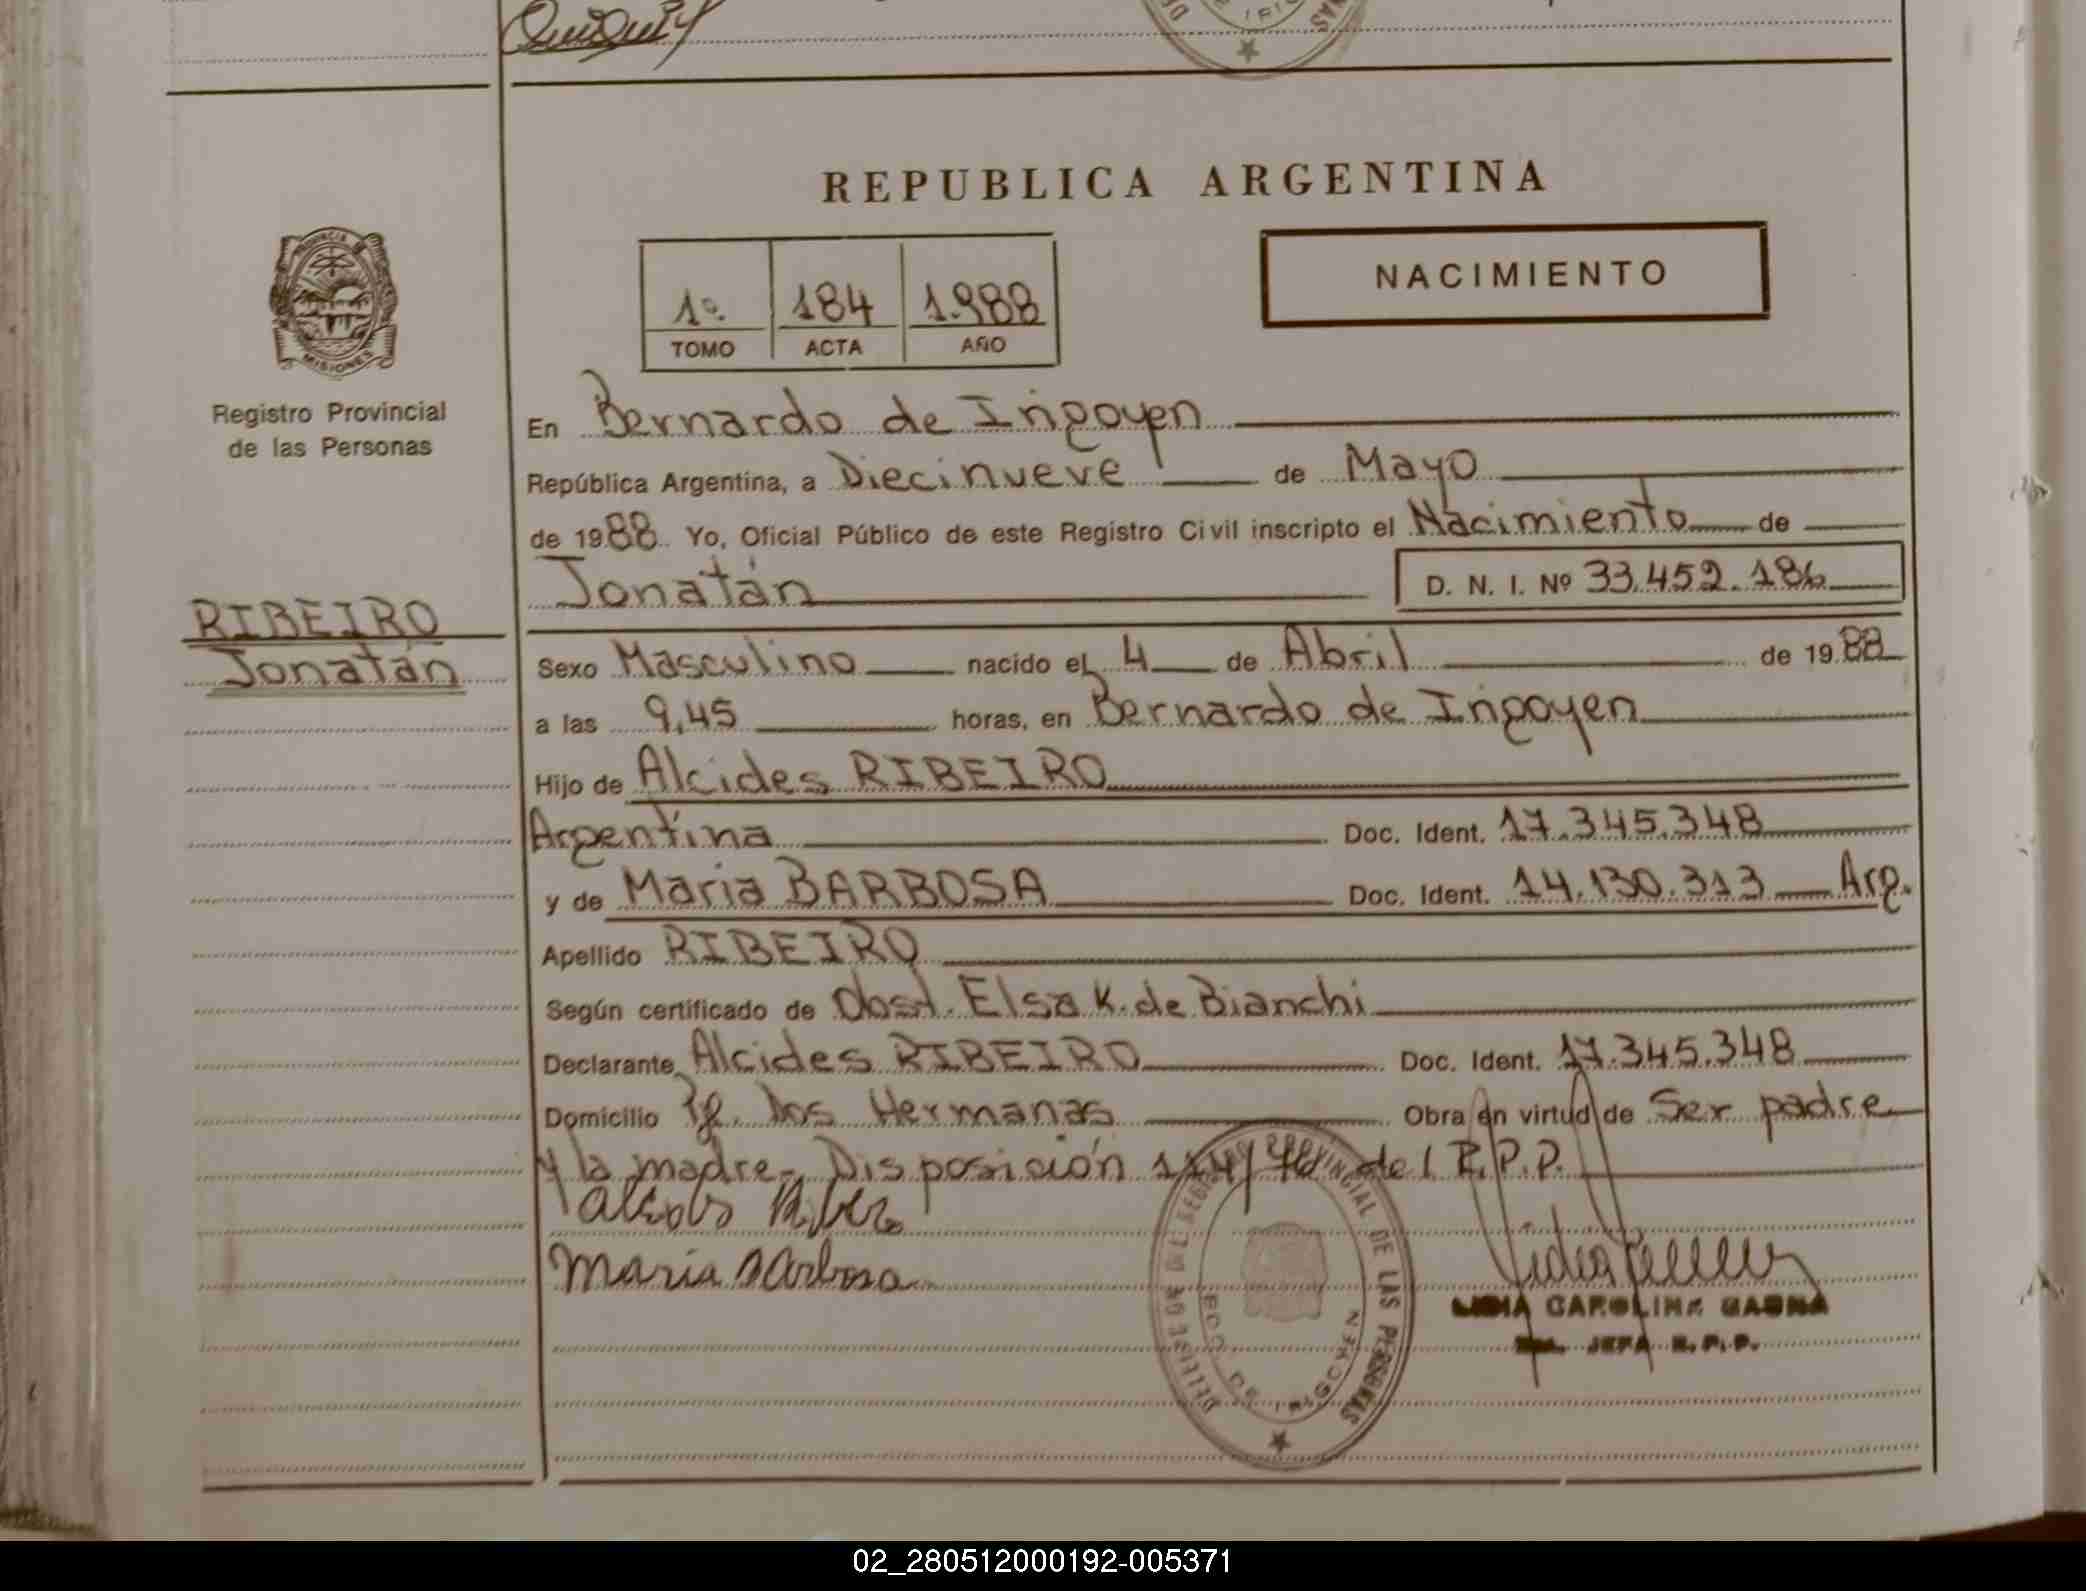 REPUBLICA ARGENTINA
NACIMIENTO
1º 184 1.988
TOMO ACTA AÑO
PROVINCIA
MISIONES
Registro Provincial
de las Personas
RIBEIRO
Jonatán
En Bernardo de Irigoyen
República Argentina, a Diecinueve de Mayo
de 1988 Yo, Oficial Público de este Registro Civil inscripto el Nacimiento de
Jonatán D. N. I. Nº 33.452.186
Sexo Masculino nacido el 4 de Abril de 1988
a las 9,45 horas, en Bernardo de Irigoyen
Hijo de Alcides RIBEIRO
Argentina Doc. Ident. 17.345.348
y de Maria BARBOSA Doc. Ident. 14.130.313 Arg.
Apellido RIBEIRO
Según certificado de Obst. Elsa K. de Bianchi
Declarante Alcides RIBEIRO Doc. Ident. 17.345.348
Domicilio Dos Hermanas Obra en virtud de Ser padre
y la madre.- Disposición del R.P.P.
Maria Barbosa
LIDIA CAROLINA GAUNA
JEFA R.P.P.
PROVINCIAL DE LAS PERSONAS
BDO. DE IRIGOYEN
02_280512000192-005371